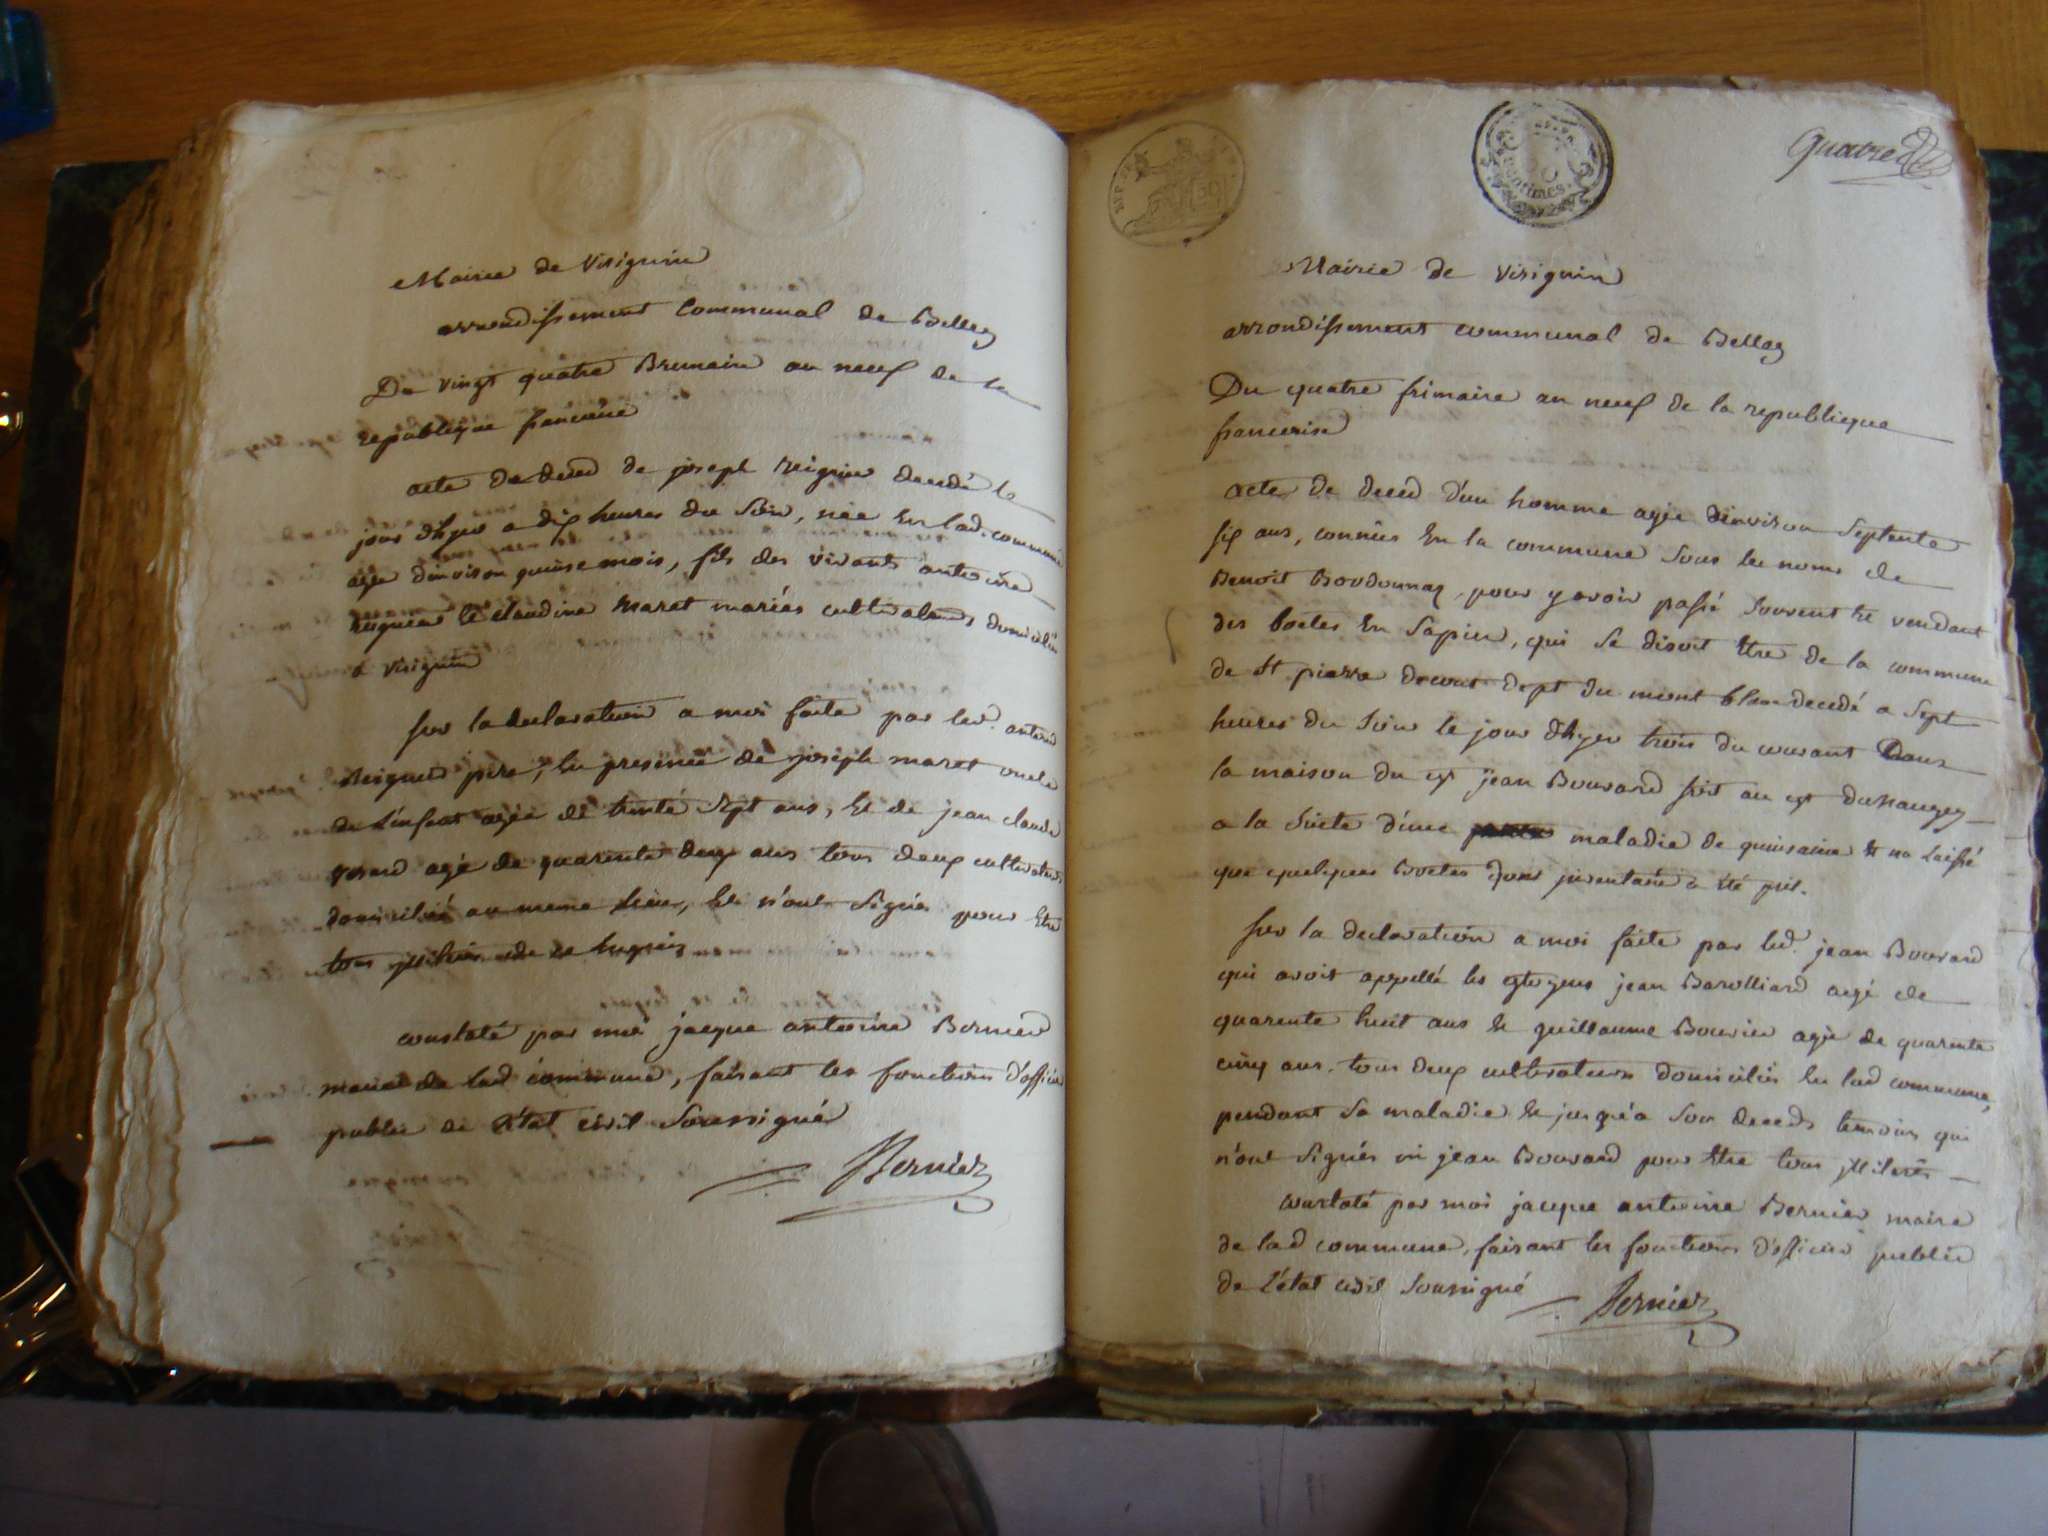 Mairie de Virignin
arrondissement Communal de Belley
Du vingt quatre Brumaire an neuf de la
republique francaise
acte de deces de joseph Reignier decedé le
jour d'hyer a dix heures du Soir, née En lad. commune
agée d'environ quinse mois, fils des vivants antoine
Reignier Et claudine Maret mariés cultivateurs domiciliés
a virignin
Sur la declaration a moi faite par led. antoine
Reignier pere, En presence de joseph maret oncle
de L'enfant agée de trente Sept ans, Et de jean claude
agé de quarente deux ans tous deux cultivateurs
domiciliés au meme Lieu, Et n'ont Signés pour Etre
tous de ce Enquis
constaté par moi jacque antoine Bernier
maire de lad commune, faisant les fonctions d'officier
public de L'état civil Soussigné
Bernier
REP. FRA.
50
centimes
quatre
Mairie de virignin
arrondissement communal de Belley
Du quatre frimaire an neuf de la republique
francaise
acte de deces d'un homme agée d'environ Septente
six ans, connües En la commune Sous les noms de
Benoit Bovdonnaz, pour y avoir passé Souvent Et vendant
des boetes En Sapin, qui Se disoit Etre de la commune
de St pierre dept du mont blanc decedé a Sept
heures du Soir le jour d'hyer trois du courant Dans
la maison du cyt jean Bouvard
a la Suite d'une maladie de quinsaine Et na Laissé
que quelques Boetes dont inventaire a Eté pris.
Sur la declaration a moi faite par led. jean Bouvard
qui avoit appellé les cytoyens jean Barolliard agé de
quarente huit ans Et guillaume Bouvier agée de quarente
cinq ans. tous deux cultivateurs domiciliés En lad commune,
pendant Sa maladie Et jusqu'a Son deceds temoins qui
n'ont Signés ni jean Bouvard pour Etre tous illiterés
constaté par moi jacque antoine Bernier maire
de lad commune, faisant les fonctions d'officier public
de L'état civil Soussigné
Bernier